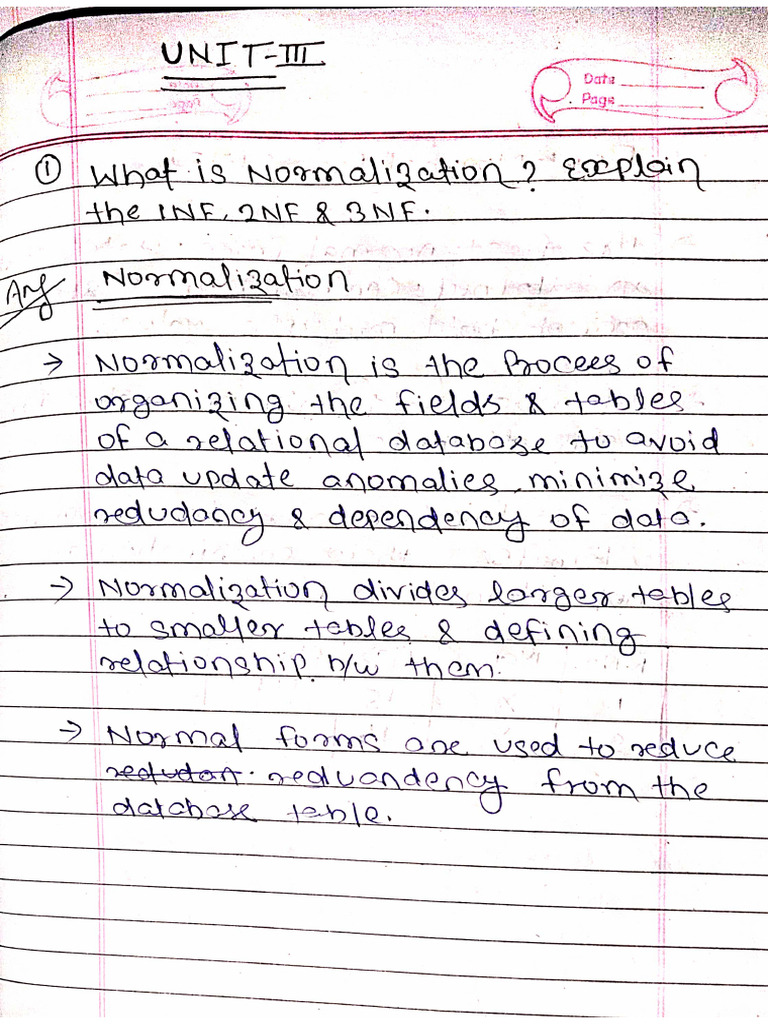 UNIT-III
Date
Page
① What is Normalization? Explain
the 1NF, 2NF & 3NF.
Ans Normalization
→ Normalization is the Procees of
organizing the fields & tables
of a relational database to avoid
data update anomalies, minimize
redudancy & dependency of data.
→ Normalization divides larger tables
to smaller tables & defining
relationship b/w them.
→ Normal forms are used to reduce
redudan. reduandency from the
database table.